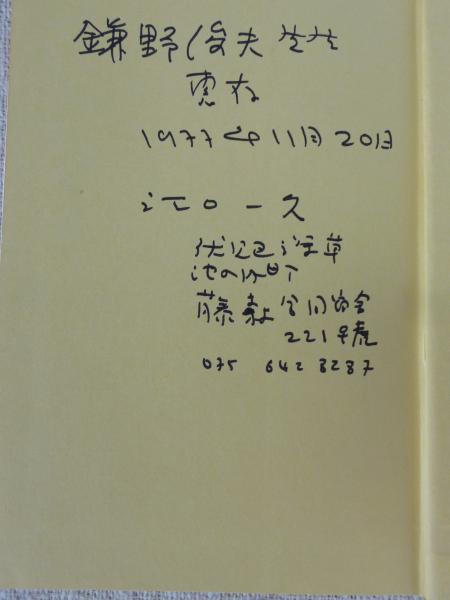 鎌野俊夫先生
恵存
1977年11月20日
江口一久
伏見区深草
池の内町
藤森合同宿舎
221号
075 642 8287